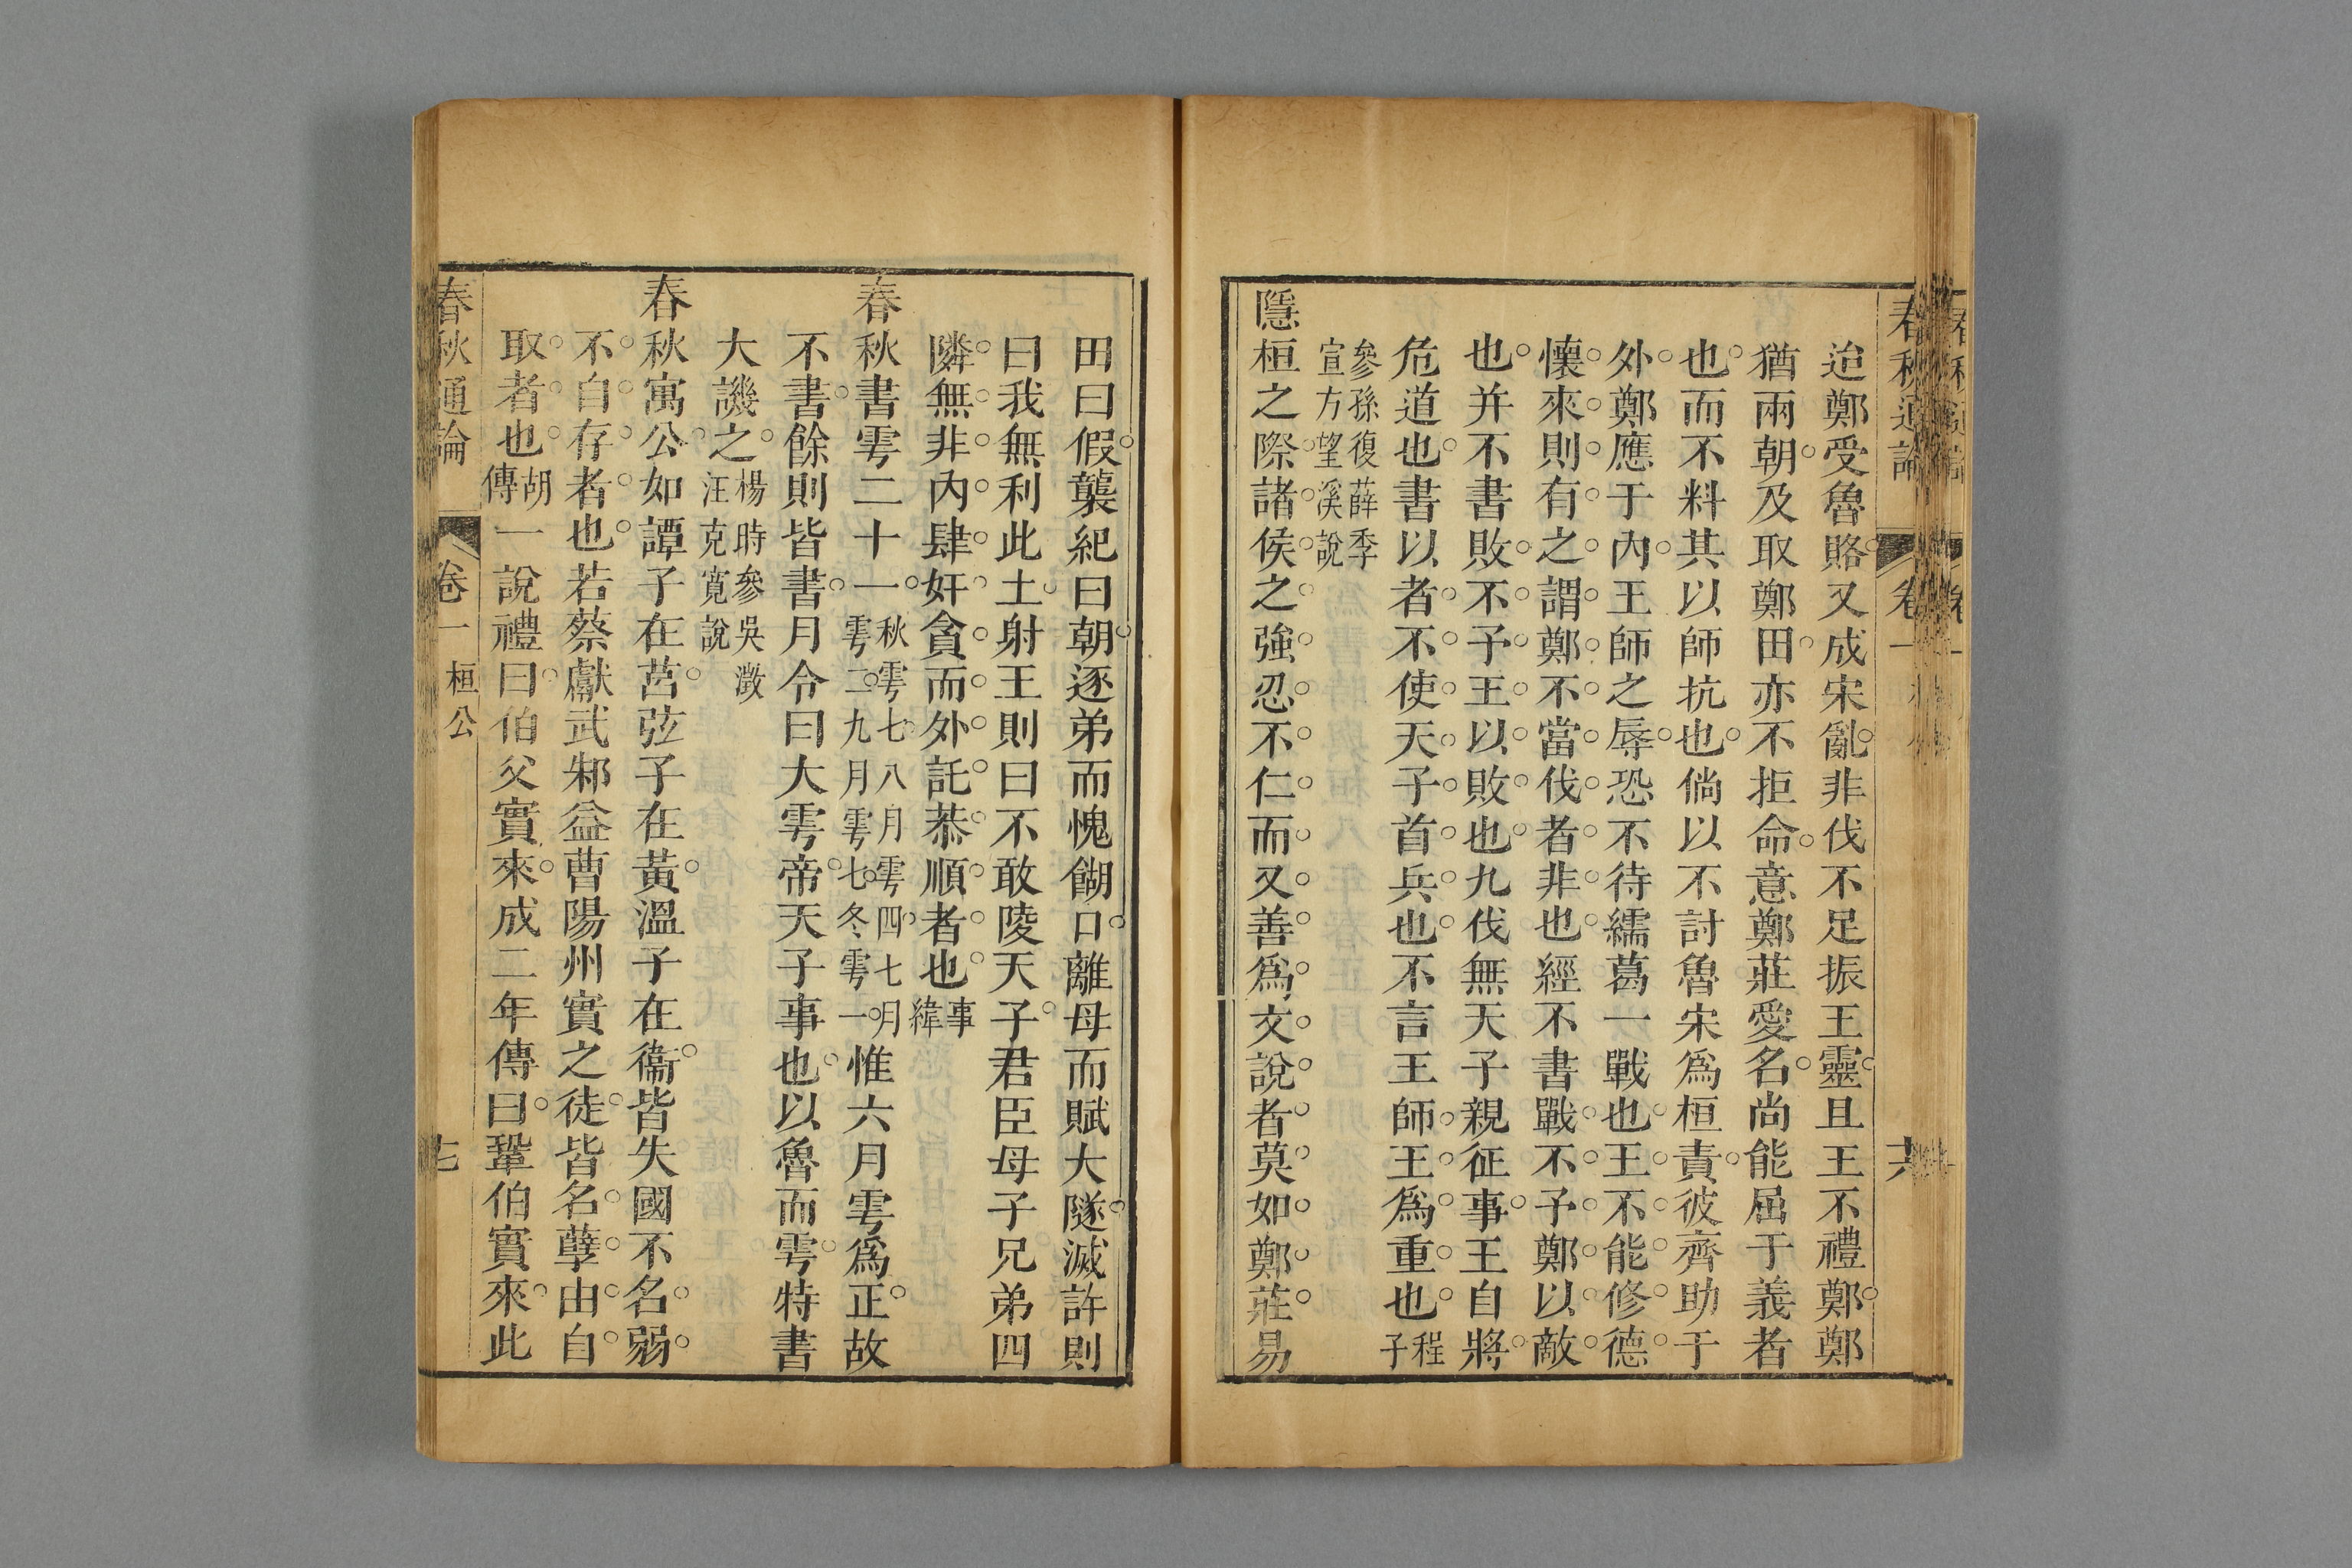 春秋通論 卷一
迨鄭受魯賂又成宋亂非伐不足振王靈且王不禮鄭鄭
猶兩朝及取鄭田亦不拒命意鄭莊愛名尚能屈于義者
也而不料其以師抗也倘以不討魯宋爲桓責彼齊助于
外鄭應于內王師之辱恐不待繻葛一戰也王不能修德
懷來則有之謂鄭不當伐者非也經不書戰不予鄭以敵
也并不書敗不予王以敗也九伐無天子親征事王自將
危道也書以者不使天子首兵也不言王師王爲重也程子
參孫復薛季
宣方望溪說
隱桓之際諸侯之強忍不仁而又善爲文說者莫如鄭莊易
田曰假襲紀曰朝逐弟而愧餬口離母而賦大隧滅許則
曰我無利此土射王則曰不敢陵天子君臣母子兄弟四
隣無非內肆奸貪而外託恭順者也事緯
春秋書雩二十一秋雩七八月雩四七月雩二九月雩七冬雩一惟六月雩爲正故
不書餘則皆書月令曰大雩帝天子事也以魯而雩特書
大譏之楊時參吳澂汪克寬說
春秋寓公如譚子在莒弦子在黃溫子在衞皆失國不名弱
不自存者也若蔡獻武邾益曹陽州實之徒皆名孽由自
取者也胡傳一說禮曰伯父實來成二年傳曰鞏伯實來此
春秋通論 卷一 桓公 七